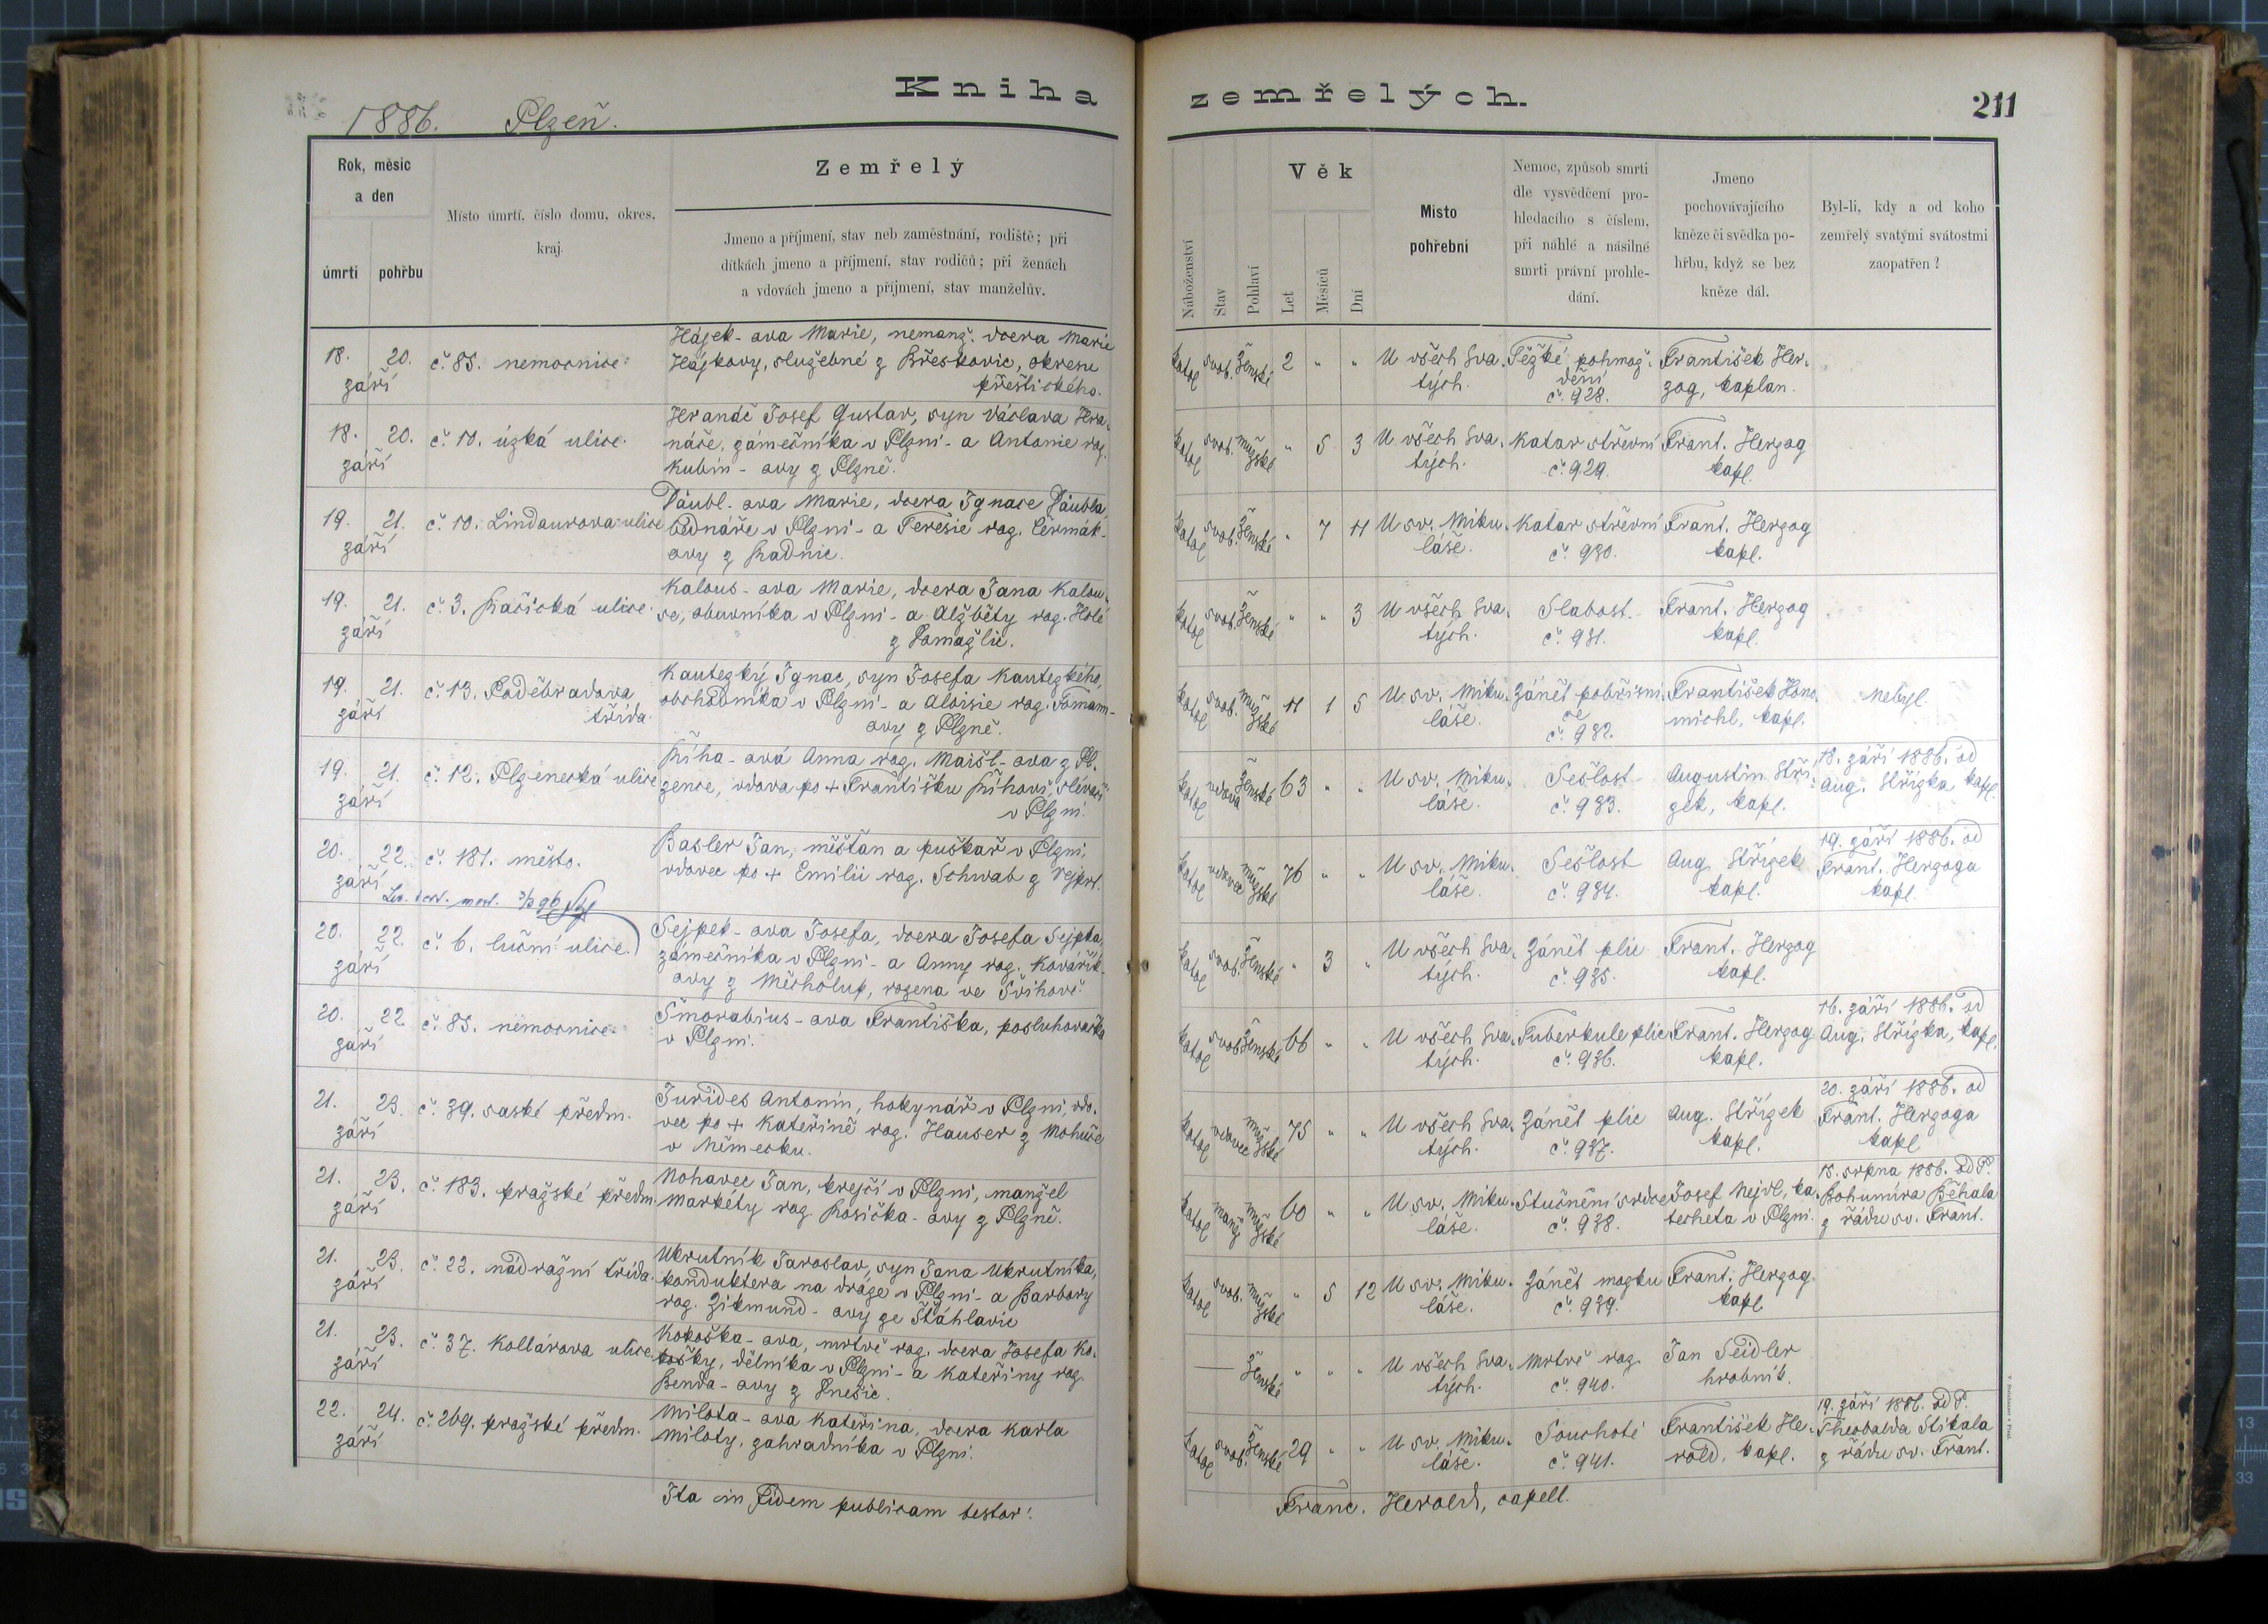 Kniha zemřelých.
211
1886. Plzeň.
Rok, měsíc
a den
úmrtí
pohřbu
Místo úmrtí, číslo domu, okres,
kraj.
Zemřelý
Jmeno a příjmení, stav neb zaměstnání, rodiště; při
dítkách jmeno a příjmení, stav rodičů; při ženách
a vdovách jmeno a příjmení, stav manželův.
Náboženství
Stav
Pohlaví
Věk
Let
Měsíců
Dní
Místo
pohřební
Nemoc, způsob smrti
dle vysvědčení pro-
hledacího s číslem,
při náhlé a násilné
smrti právní prohle-
dání.
Jmeno
pochovávajícího
kněze či svědka po-
hřbu, když se bez
kněze dál.
Byl-li, kdy a od koho
zemřelý svatými svátostmi
zaopatřen?
18. 20.
září
č. 85. nemocnice.
Hájek-ova Marie, nemanž. dcera Marie
Hájkovy, služebné z Křeskovic, okresu
přeštického.
katol svob. Ženské 2 " "
U všech Sva-
tých.
Těžké pohmož-
dění
č. 928.
František Her-
zog, kaplan.
18. 20.
září
č. 10. úzká ulice.
Hranáč Josef Gustav, syn Václava Hra-
náče, zámečníka v Plzni - a Antonie roz.
Kubín-ovy z Plzně.
katol svob. mužské " 5 3
U všech Sva-
tých.
Katar střevní
č. 929.
Frant. Herzog
kapl.
19. 21.
září
č. 10. Lindaurova ulice
Däubl-ova Marie, dcera Ignace Däubla
bednáře v Plzni - a Teresie roz. Čermák-
ovy z Radnic.
katol svob. Ženské " 7 11
U sv. Miku-
láše.
Katar střevní
č. 930.
Frant. Herzog
kapl.
19. 21.
září
č. 3. Račická ulice.
Kalous-ova Marie, dcera Jana Kalou-
se, obuvníka v Plzni - a Alžběty roz. Holé
z Domažlic.
katol svob. Ženské " " 3
U všech Sva-
tých.
Slabost.
č. 931.
Frant. Herzog
kapl.
19. 21.
září
č. 13. Poděbradova
třída.
Kautezký Ignac, syn Josefa Kautezkého,
obchodníka v Plzni - a Aloisie roz. Tomam-
ovy z Plzně.
katol svob. mužské 11 1 5
U sv. Miku-
láše.
Zánět pobřišni-
ce
č. 932.
František Hono-
michl, kapl.
Nebyl.
19. 21.
září
č. 12. Plzenecká ulice
Říha-ová Anna roz. Maišl-ova z Pl-
zence, vdova po + Františku Říhovi, slévači
v Plzni.
katol vdova Ženské 63 " "
U sv. Miku-
láše.
Sešlost
č. 933.
Augustin Stří-
zek, kapl.
18. září 1886. od
Aug. Střízka kapl.
20. 22.
září
č. 181. město.
Basler Jan, měšťan a puškař v Plzni,
vdovec po + Emilii roz. Schwab z Vejprt.
katol vdovec mužské 76 " "
U sv. Miku-
láše.
Sešlost
č. 934.
Aug. Střízek
kapl.
19. září 1886. od
Frant. Herzoga
kapl.
20. 22.
září
č. 6. luční ulice.
Sejpek-ova Josefa, dcera Josefa Sejpka,
zámečníka v Plzni - a Anny roz. Kovářík-
ovy z Měcholup, rozena ve Švihově.
katol svob. Ženské " 3 "
U všech Sva-
tých.
Zánět plic
č. 935.
Frant. Herzog
kapl.
20. 22
září
č. 85. nemocnice.
Smorabius-ova Františka, posluhovačka
v Plzni.
katol svob. Ženské 66 " "
U všech Sva-
tých.
Tuberkule plic
č. 936.
Frant. Herzog
kapl.
16. září 1886. od
Aug. Střízka, kapl.
21. 23.
září
č. 39. saské předm.
Jurides Antonín, hokynář v Plzni, vdo-
vec po + Kateřině roz. Hauser z Mohuče
v Německu.
katol vdovec mužské 75 " "
U všech Sva-
tých.
Zánět plic
č. 937.
Aug. Střízek
kapl.
20. září 1886. od
Frant. Herzoga
kapl
21. 23.
září
č. 183. pražské předm.
Nohavec Jan, krejčí v Plzni, manžel
Markéty roz. Rosička-ovy z Plzně.
katol manž mužské 60 " "
U sv. Miku-
láše.
Stučnění srdce
č. 938.
Josef Nejdl, ka-
techeta v Plzni.
18. srpna 1886. od P.
Bohumíra Běhala
z řádu sv. Frant.
21. 23.
září
č. 22. nádražní třída.
Ukrutník Jaroslav, syn Jana Ukrutníka,
konduktera na dráze v Plzni - a Barbory
roz. Zikmund-ovy ze Štáhlavic
katol svob. mužské " 5 12
U sv. Miku-
láše.
Zánět mozku
č. 939.
Frant. Herzog.
kapl
21. 23.
září
č. 37. Kollárova ulice.
Kokoška-ova, mrtvě roz. dcera Josefa Ko-
košky, dělníka v Plzni - a Kateřiny roz.
Benda-ovy z Dnešic.
Ženské " " "
U všech Sva-
tých.
Mrtvě roz.
č. 940.
Jan Seidler
hrobník.
22. 24.
září
č. 269. pražské předm.
Milota-ova Kateřina, dcera Karla
Miloty, zahradníka v Plzni.
katol svob. Ženské 29 " "
U sv. Miku-
láše.
Souchotě
č. 941.
František He-
rold, kapl.
19. září 1886. od P.
Theobalda Stikala
z řádu sv. Frant.
Ita in fidem publicam testor:
Franc. Herold, capell.